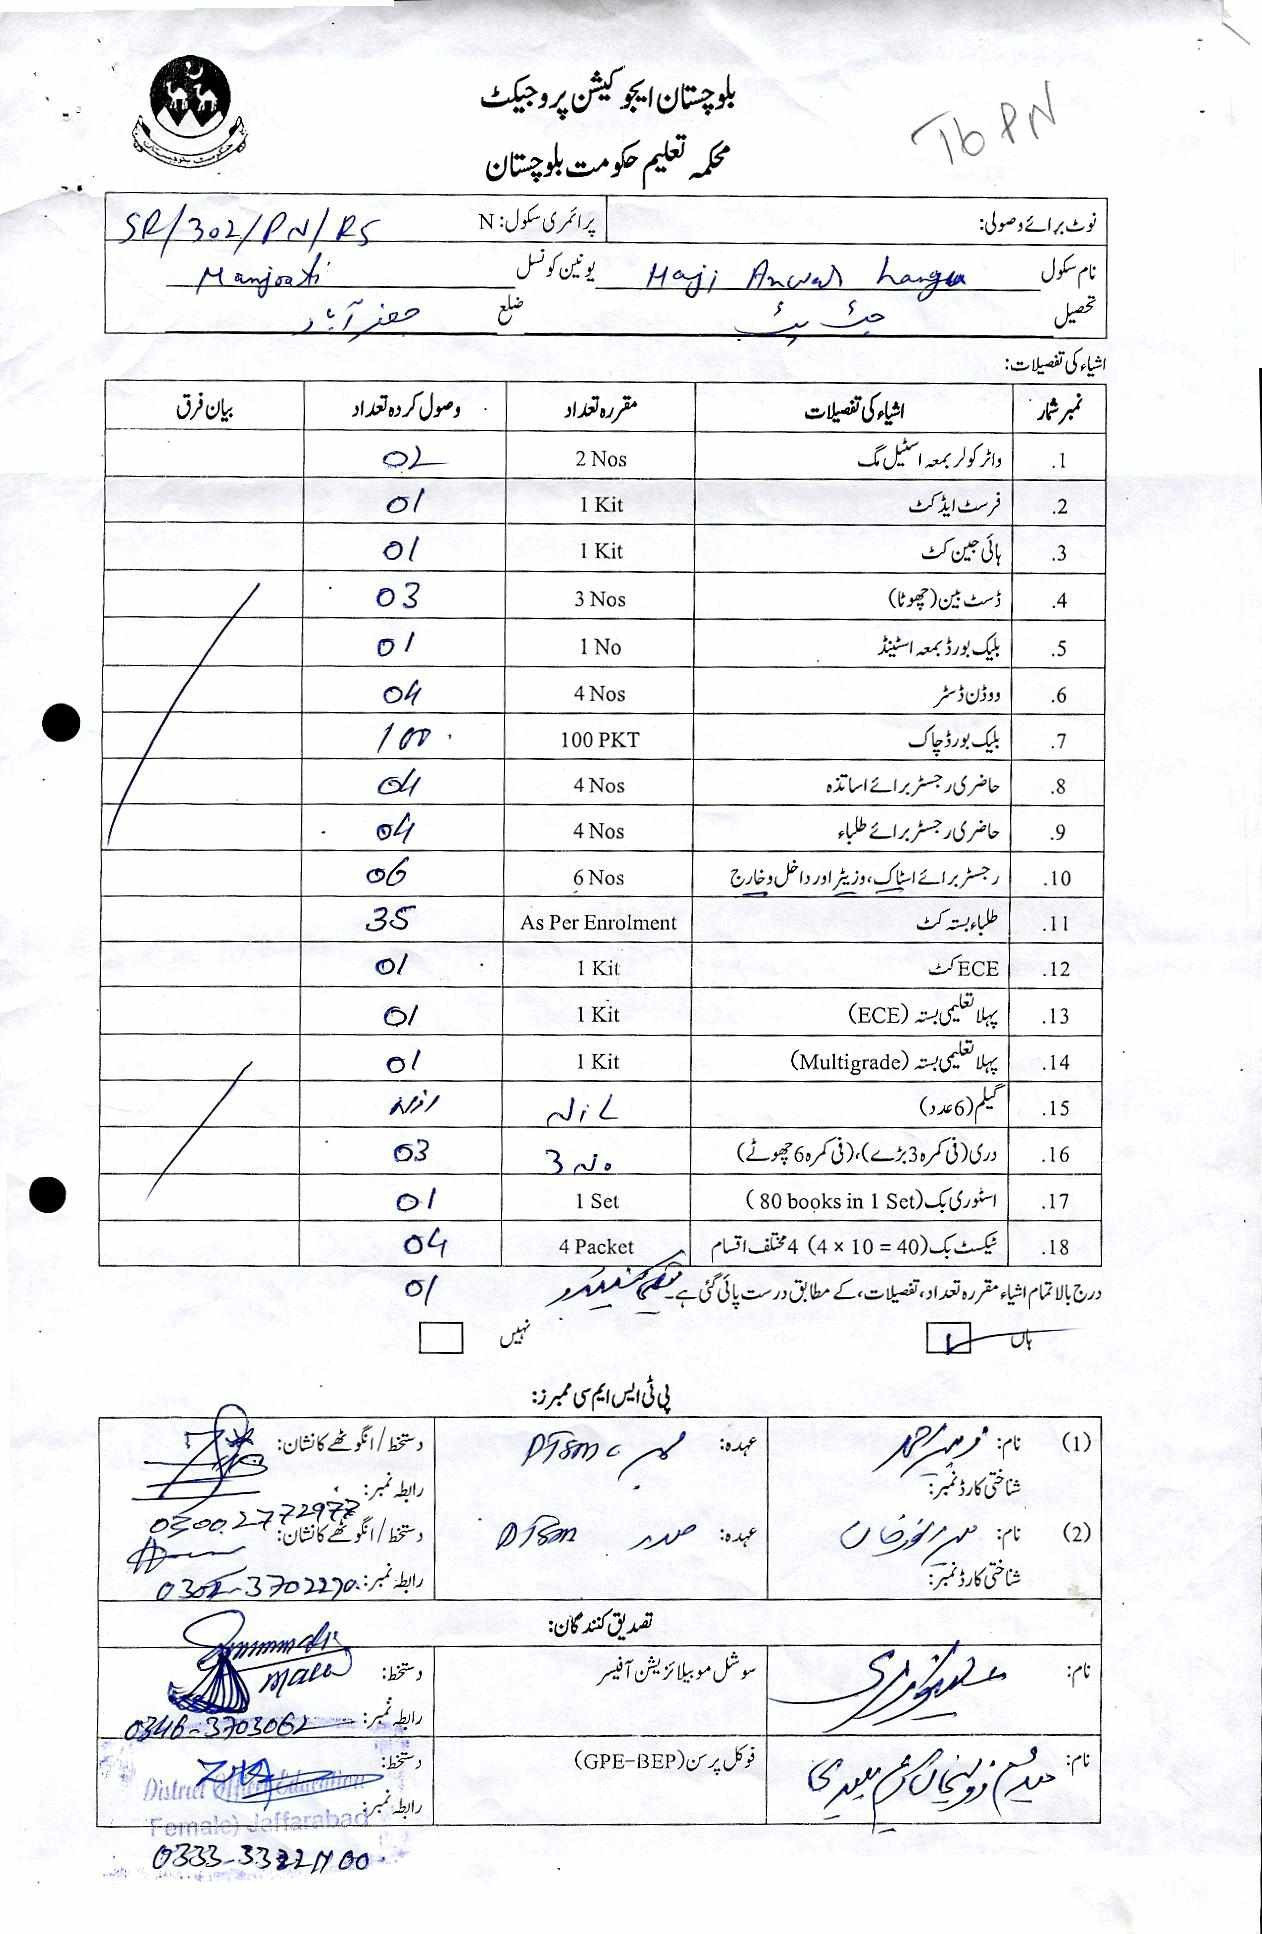 بلوچستان ایجوکیشن پروجیکٹ
محکمہ تعلیم حکومت بلوچستان
Tb PN
نوٹ برائے وصولی: پرائمری سکول: N SR/302/PN/RS
نام سکول Haji Anwar یونین کونسل
تحصیل ضلع جعفر آباد
اشیاء کی تفصیلات:
نمبر شمار اشیاء کی تفصیلات مقررہ تعداد وصول کردہ تعداد بیان فرق
1. واٹر کولر بمعہ اسٹیل مگ 2 Nos 02
2. فرسٹ ایڈ کٹ 1 Kit 01
3. ہائی جین کٹ 1 Kit 01
4. ڈسٹ بین (چھوٹا) 3 Nos 03
5. بلیک بورڈ بمعہ اسٹینڈ 1 No 01
6. ووڈن ڈسٹر 4 Nos 04
7. بلیک بورڈ چاک 100 PKT 100
8. حاضری رجسٹر برائے اساتذہ 4 Nos 04
9. حاضری رجسٹر برائے طلباء 4 Nos 04
10. رجسٹر برائے اسٹاک، وزیٹر اور داخل و خارج 6 Nos 06
11. طلباء بستہ کٹ As Per Enrolment 35
12. ECE کٹ 1 Kit 01
13. پہلا تعلیمی بستہ (ECE) 1 Kit 01
14. پہلا تعلیمی بستہ (Multigrade) 1 Kit 01
15. گیلم (6 عدد) Nil
16. دری (فی کمرہ 3 بڑے)، (فی کمرہ 6 چھوٹے) 3 No 03
17. اسٹوری بک (80 books in 1 Set) 1 Set 01
18. ٹیکسٹ بک (4 × 10 = 40) 4 مختلف اقسام 4 Packet 04
درج بالا تمام اشیاء مقررہ تعداد، تفصیلات، کے مطابق درست پائی گئی ہے۔ 01
ہاں نہیں
پی ٹی ایس ایم سی ممبرز:
(1) نام: عہدہ: ممبر PTSMC دستخط / انگوٹھے کا نشان:
شناختی کارڈ نمبر: رابطہ نمبر: 0300 2772977
(2) نام: عہدہ: صدر PTSM دستخط / انگوٹھے کا نشان:
شناختی کارڈ نمبر: رابطہ نمبر: 0302-3702270
تصدیق کنندگان:
نام: سوشل موبیلائزیشن آفیسر دستخط:
رابطہ نمبر: 0346-3703062
نام: فوکل پرسن (GPE-BEP) دستخط:
رابطہ نمبر:
District Officer Education
Female) Jaffarabad